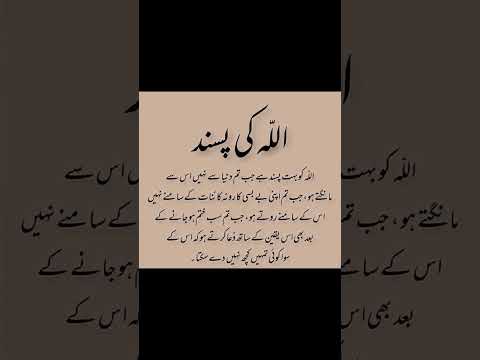 اللّہ کی پسند
اللہ کو بہت پسند ہے جب تم دنیا سے نہیں اس سے
مانگتے ہو، جب تم اپنی بے بسی کا رونہ کائنات کے سامنے نہیں
اس کے سامنے روتے ہو، جب تم سب ختم ہو جانے کے
بعد بھی اس یقین کے ساتھ دُعا کرتے ہو کہ اس کے
سوا کوئی تمہیں کچھ نہیں دے سکتا۔